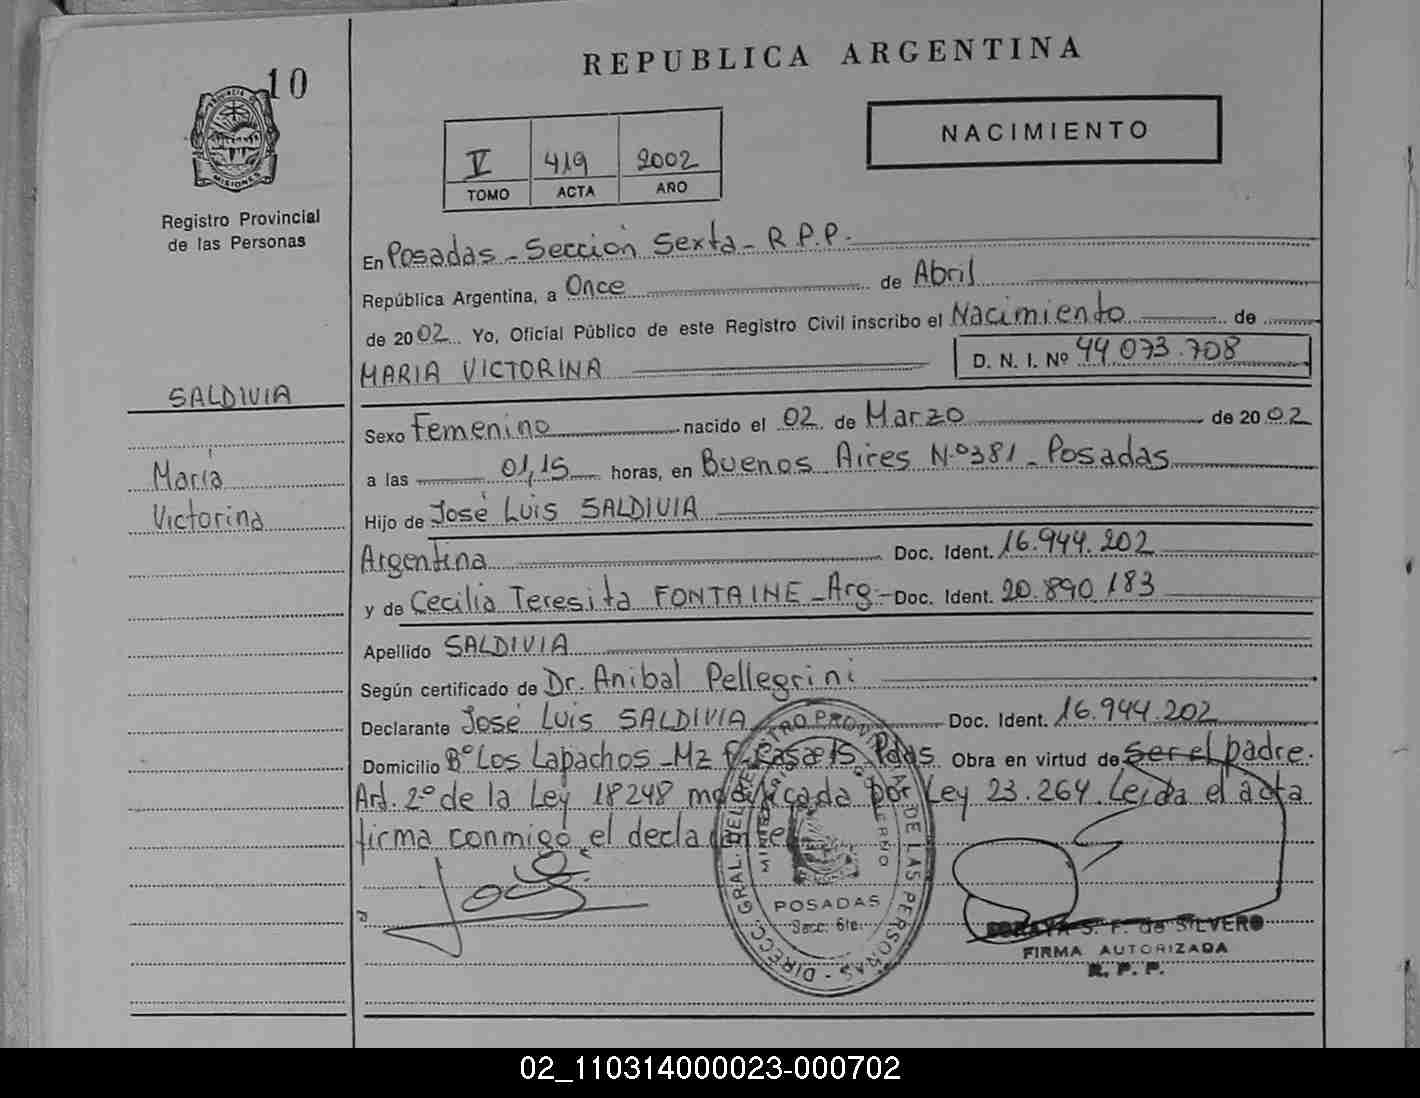 REPUBLICA ARGENTINA
10
PROVINCIA DE
MISIONES
Registro Provincial
de las Personas
NACIMIENTO
V 419 2002
TOMO ACTA AÑO
En Posadas - Sección Sexta - R.P.P.
República Argentina, a Once de Abril
de 2002 Yo, Oficial Público de este Registro Civil inscribo el Nacimiento de
MARIA VICTORINA D. N. I. Nº 44.073.708
SALDIVIA
María
Victorina
Sexo Femenino nacido el 02 de Marzo de 2002
a las 01,15 horas, en Buenos Aires N.º381 - Posadas
Hijo de José Luis SALDIVIA
Argentina Doc. Ident. 16.944.202
y de Cecilia Teresita FONTAINE - Arg - Doc. Ident. 20.890.183
Apellido SALDIVIA
Según certificado de Dr. Anibal Pellegrini
Declarante José Luis SALDIVIA Doc. Ident. 16.944.202
Domicilio Bº Los Lapachos - Mz Casa 15 Pdas. Obra en virtud de ser el padre.
Art. 2º de la Ley 18248 modificada por Ley 23.264. Leída el acta
firma conmigo el declarante
DIRECC. GRAL. DEL REGISTRO PROVINCIAL DE LAS PERSONAS
MINISTERIO GOBIERNO
POSADAS
Secc. 6ta.
SORAYA S. F. de SILVERO
FIRMA AUTORIZADA
R. P. P.
02_110314000023-000702